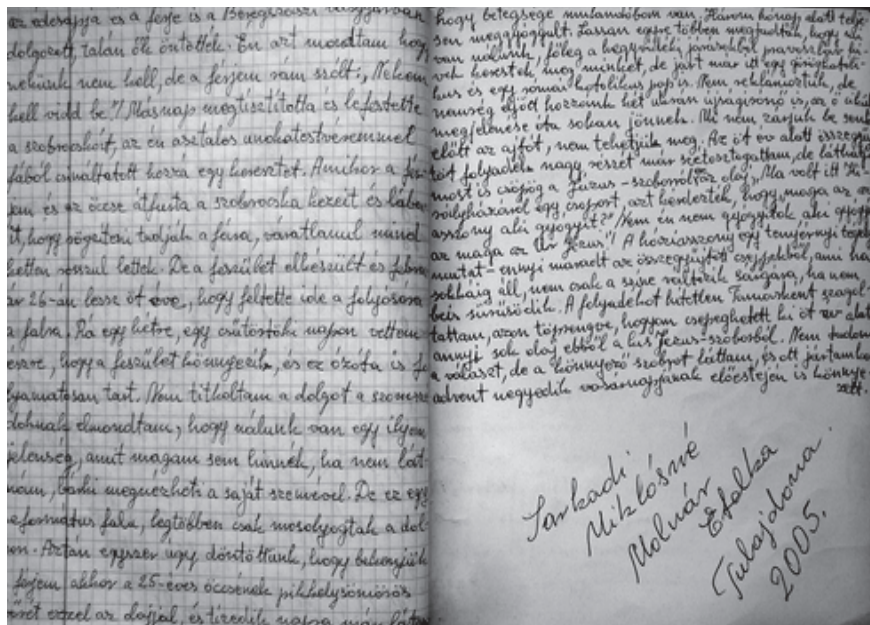 az édesapja és a férje is a Beregszászi
dolgozott, talán ők öntötték. Én azt mondtam hogy
nekünk nem kell, de a férjem rám szólt: „Nekem
kell vidd be”! Másnap megtisztította és lefestette
a szobrocskát, az én asztalos unokatestvéremmel
fából csináltatott hozzá egy keresztet. Amikor a fér-
jem és az öccse átfúrta a szobrocska kezeit és lába-
it, hogy rögzíteni tudják a fára, váratlanul mind
ketten rosszul lettek. De a feszület elkészült és febru
ár 26-án lesz öt éve, hogy feltette ide a folyosóra
a falra. Rá egy hétre, egy csütörtöki napon vettem
észre, hogy a feszület könnyezik, és ez azóta is fo
lyamatosan tart. Nem titkoltam a dolgot a szomszé
doknak elmondtam, hogy nálunk van egy ilyen
jelenség, amit magam sem hinnék, ha nem lát-
nám, bárki megnézheti a saját szemével. De ez egy
református falu, legtöbben csak mosolyogtak a dol
gon. Aztán egyszer úgy döntöttünk, hogy bekenjük
férjem akkor a 25-éves öccsének pikkelysömörös
ezzel az olajjal, és tizedik napra már
hogy betegsége múlandóban van. Három hónap alatt telje
sen meggyógyult. Lassan egyre többen megtudták, hogy mi
van nálunk, főleg a hegyvidéki járásokból pravoszláv hí-
vek keresték meg minket, de járt már itt egy görögkatoli-
kus és egy római katolikus pap is. Nem reklámoztuk, de
nemrég eljött hozzánk két ukrán újságírónő is, az ő
megjelenése óta sokan jönnek. Mi nem zárjuk be senki
előtt az ajtót, nem tehetjük meg. Az öt év alatt összegyűj
tött folyadék nagy részét már szétosztogattam, de láthatja
most is csöpög a Jézus-szoborról az olaj. Ma volt itt Ki-
rályházáról egy csoport, azt kérdezték, hogy maga az az
asszony aki gyógyít?” Nem én nem gyógyítok aki gyógyít
az maga az Úr Jézus”! A háziasszony egy tenyérnyi tégelyt
mutat - ennyi maradt az összegyűjtött cseppekből, ami ha
sokáig áll, nem csak a színe változik sárgára, ha nem
be is sűrűsödik. A folyadékot hitetlen Tamásként szagol-
tattam, azon töprengve, hogyan csepeghetett ki öt év alatt
annyi sok olaj ebből a kis Jézus-szoborból. Nem tudom
a választ, de a könnyező szobrot láttam, és ott jártamkor
advent negyedik vasárnapjának előestéjén is könnye-
zett.
Sarkadi
Miklósné
Molnár
Etelka
Tulajdona.
2005.